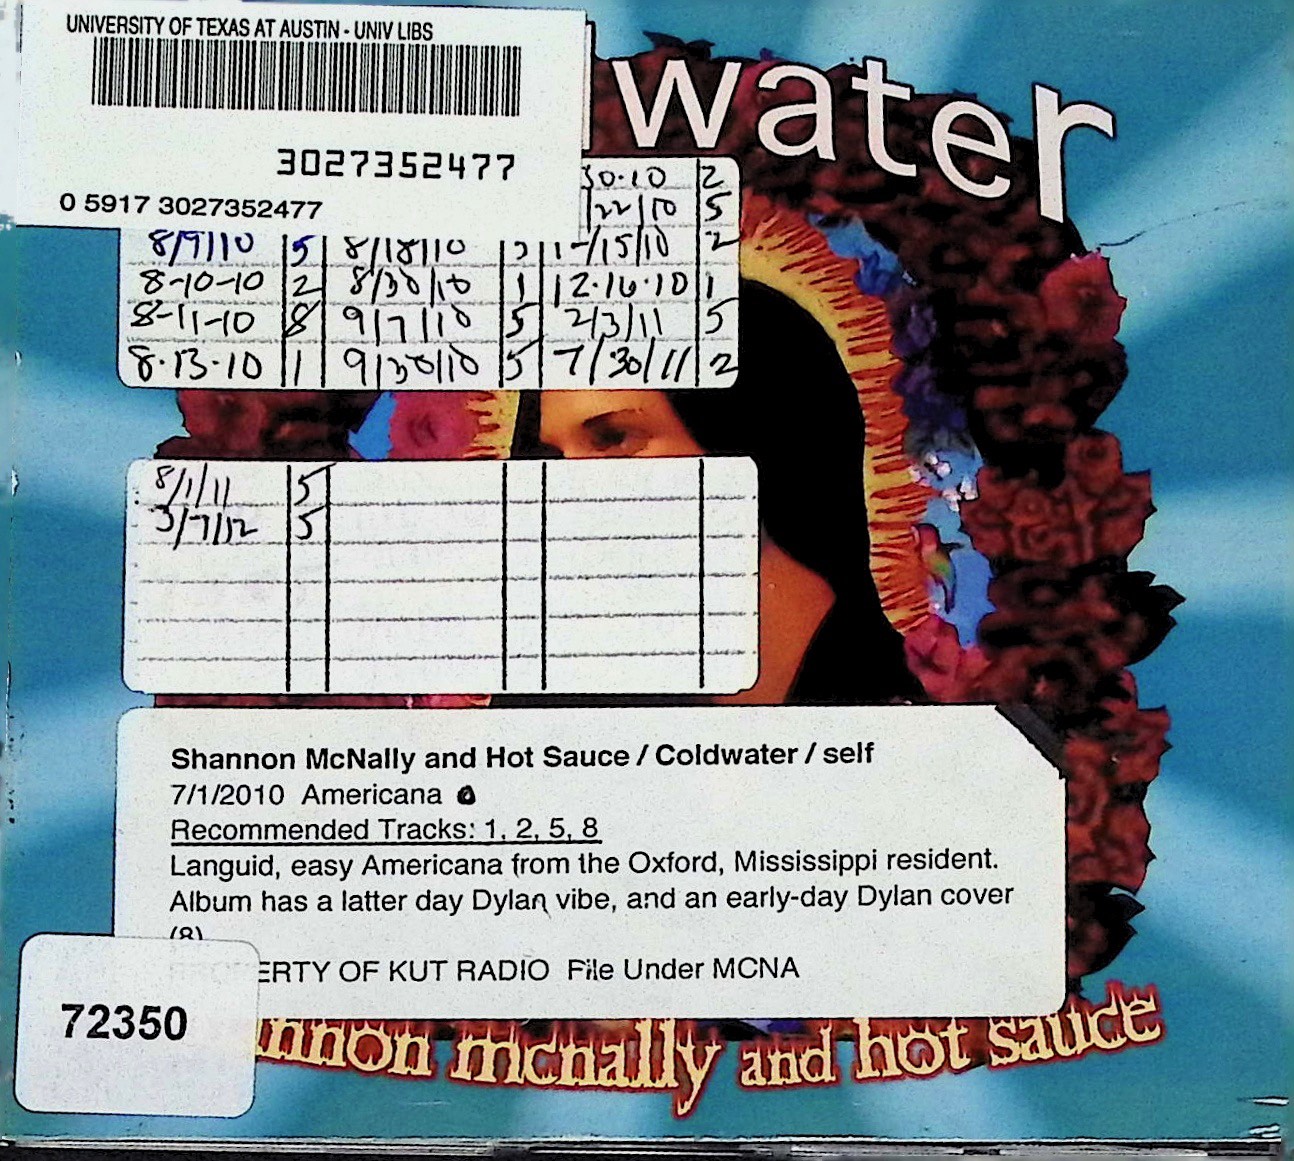 UNIVERSITY OF TEXAS AT AUSTIN - UNIV LIBS
3027352477
0 5917 3027352477
water
30·10 2
22/10 5
8/9/10 5 8/18/10 /15/10 2
8-10-10 2 8/30/10 1 12·16·10 1
8-11-10 8 9/7/10 5 2/3/11 5
8·13·10 1 9/30/10 5 7/30/11 2
8/1/11 5
3/7/12 5
Shannon McNally and Hot Sauce / Coldwater / self
7/1/2010 Americana
Recommended Tracks: 1, 2, 5, 8
Languid, easy Americana from the Oxford, Mississippi resident.
Album has a latter day Dylan vibe, and an early-day Dylan cover
(8)
ERTY OF KUT RADIO File Under MCNA
72350
nnon mcnally and hot sauce